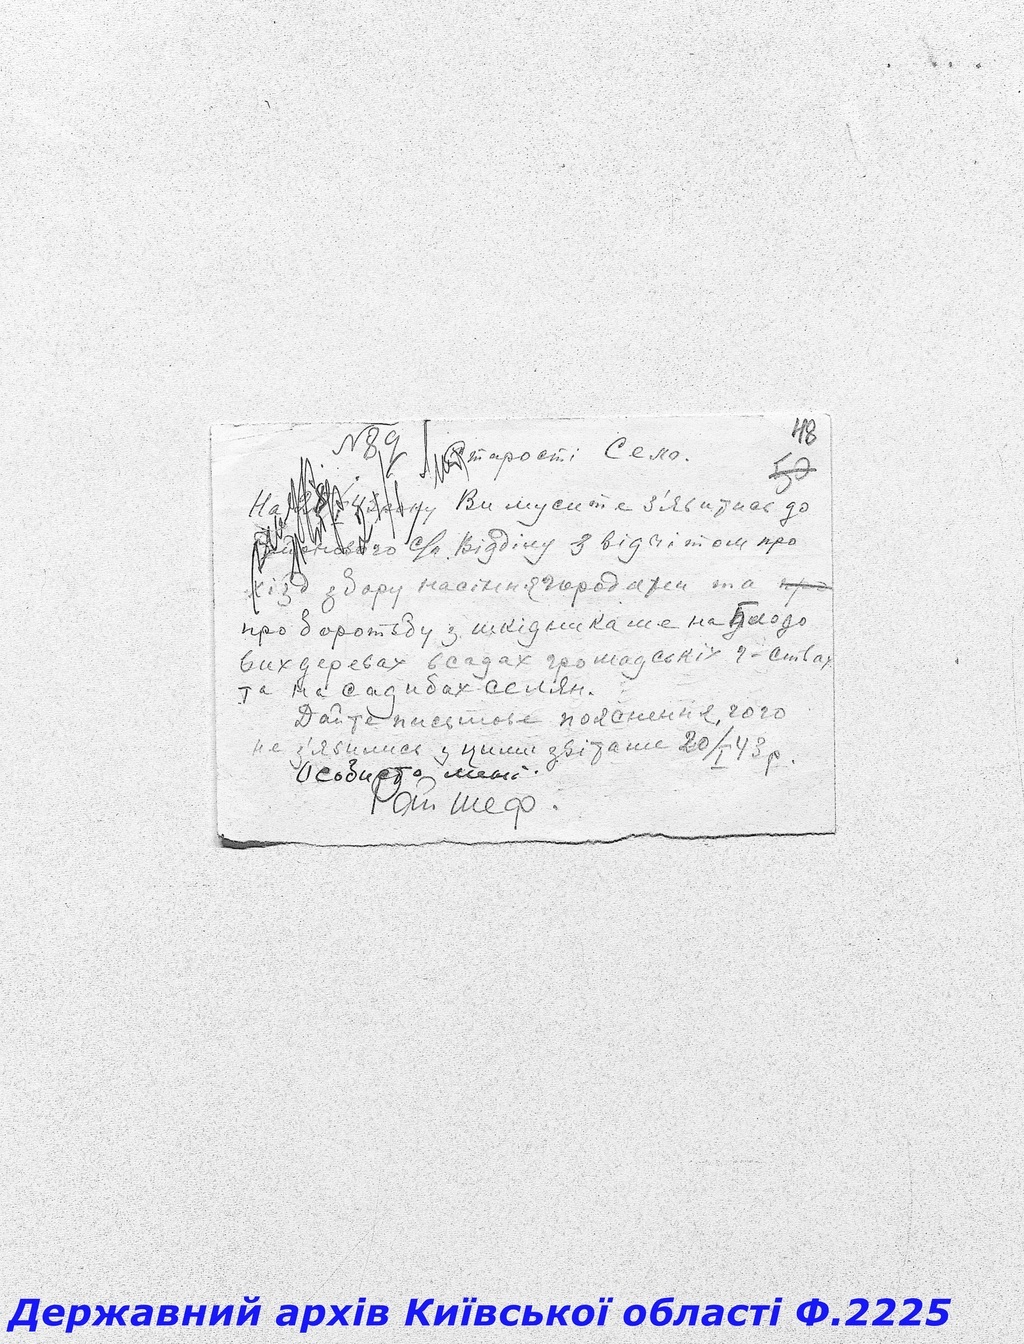 48
№89
50
Старості Село.
На року Ви мусите з'явитись до
Районового с/г. Відділу з відчітом про
хід збору насіння городини та про
про боротьбу з шкідниками на плодо
вих деревах в садах громадських г-ствах
та на садибах селян.
Дайте письмове пояснення, чого
не з'явились з цими звітами 20/I 43 р.
Особисто мені.
Рай шеф.
Державний архів Київської області Ф.2225